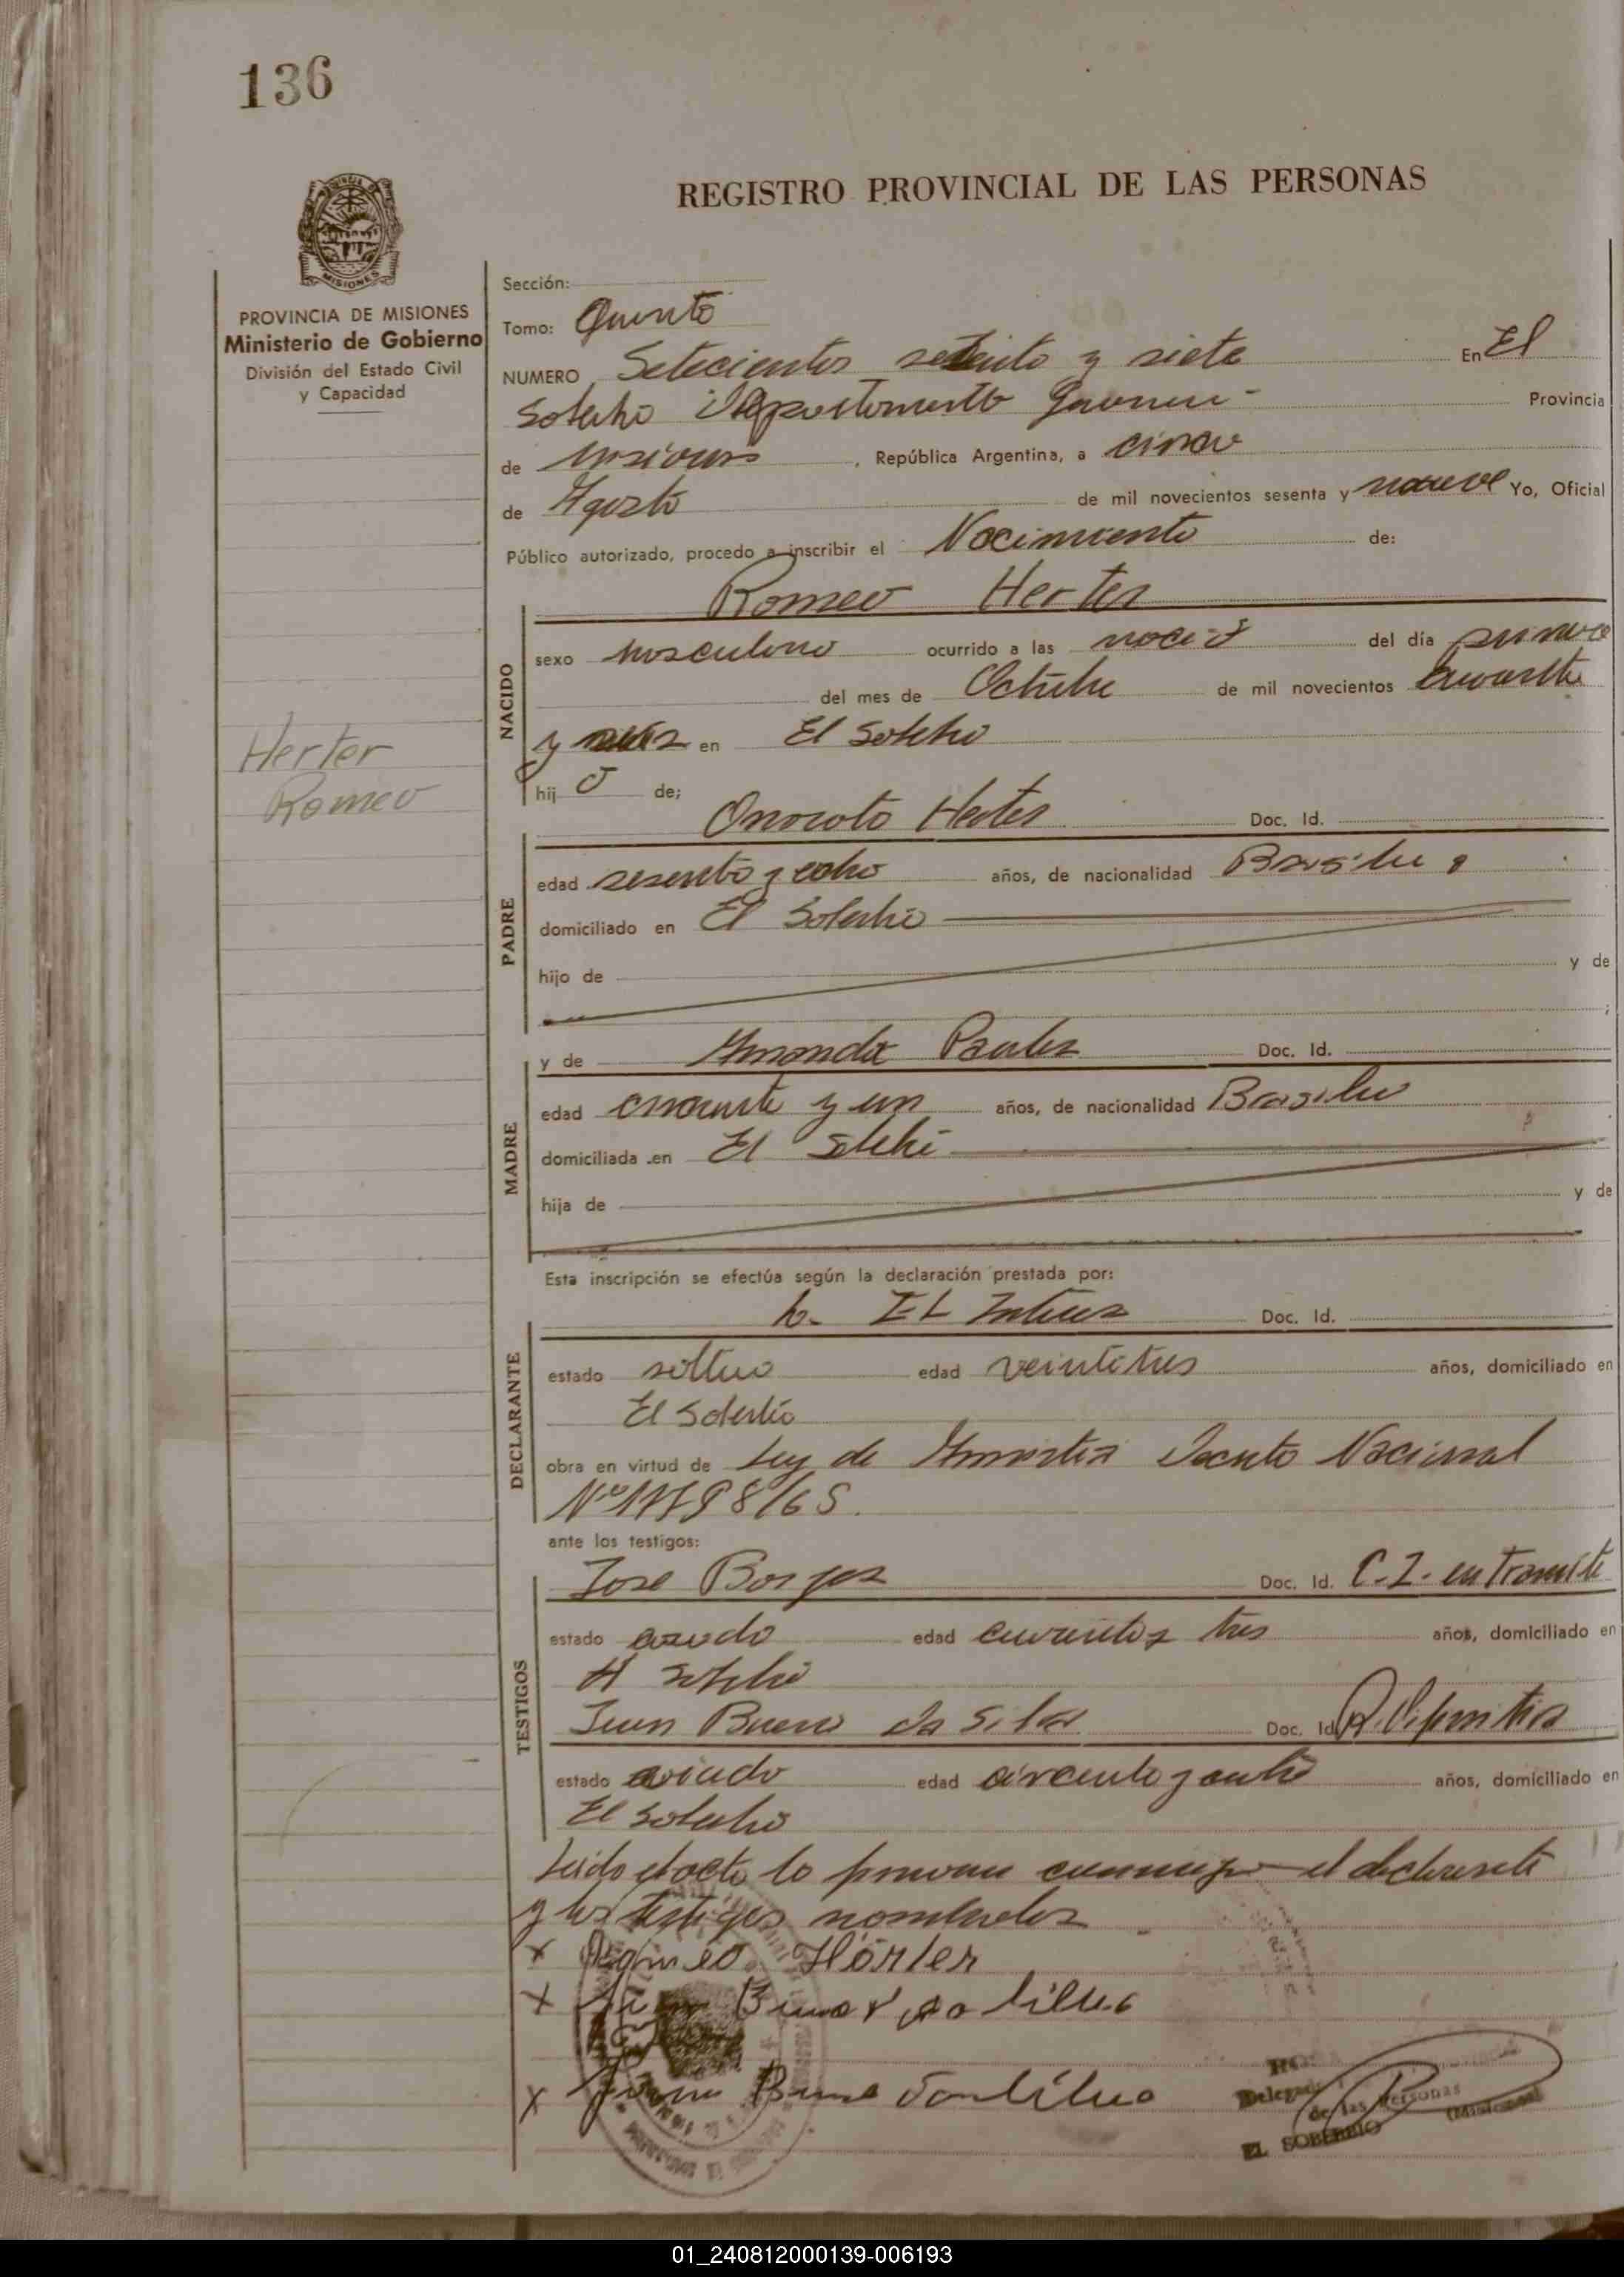 136
REGISTRO PROVINCIAL DE LAS PERSONAS
MISIONES
PROVINCIA DE MISIONES
Ministerio de Gobierno
División del Estado Civil
y Capacidad
Sección:
Tomo: Quinto
NUMERO Setecientos setenta y siete En El
Soberbio Departamento Guaraní - Provincia
de Misiones, República Argentina, a cinco
de Agosto de mil novecientos sesenta y nueve Yo, Oficial
Público autorizado, procedo a inscribir el Nacimiento de:
Romeo Herter
NACIDO
sexo masculino ocurrido a las del día
del mes de Octubre de mil novecientos cuarenta
y seis en El Soberbio
Herter
Romeo
hij o de;
Herter Doc. Id.
PADRE
edad sesenta y ocho años, de nacionalidad Brasileña
domiciliado en El Soberbio
hijo de y de
y de Amanda Doc. Id.
MADRE
edad cincuenta y un años, de nacionalidad Brasilera
domiciliada en El Soberbio
hija de y de
Esta inscripción se efectúa según la declaración prestada por:
Doc. Id.
DECLARANTE
estado soltero edad veintitres años, domiciliado en
El Soberbio
obra en virtud de Ley de Amnistia Decreto Nacional
Nº
ante los testigos:
Jose Borges Doc. Id. C.I. en Tramite
TESTIGOS
estado casado edad cuarenta y tres años, domiciliado en
El Soberbio
Juan Bueno da Silva Doc. Id.
estado viudo edad años, domiciliado en
El Soberbio
Leido el acta lo firman conmigo el declarante
y los testigos nombrados
x Romeo Hörter
x
x
Delegado
de las Personas
EL SOBERBIO (Misiones)
01_240812000139-006193